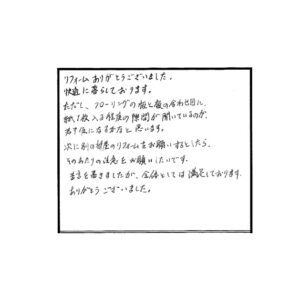 リフォームありがとうございました。
快適に暮らしております。
ただし、フローリングの板と板の合わせ目に
紙1枚入る程度の隙間が開いているのが、
若干気になるかなと思います。
次に別の部屋のリフォームをお願いするとしたら、
そのあたりの注意をお願いしたいです。
書きましたが、全体としては満足しております。
ありがとうございました。